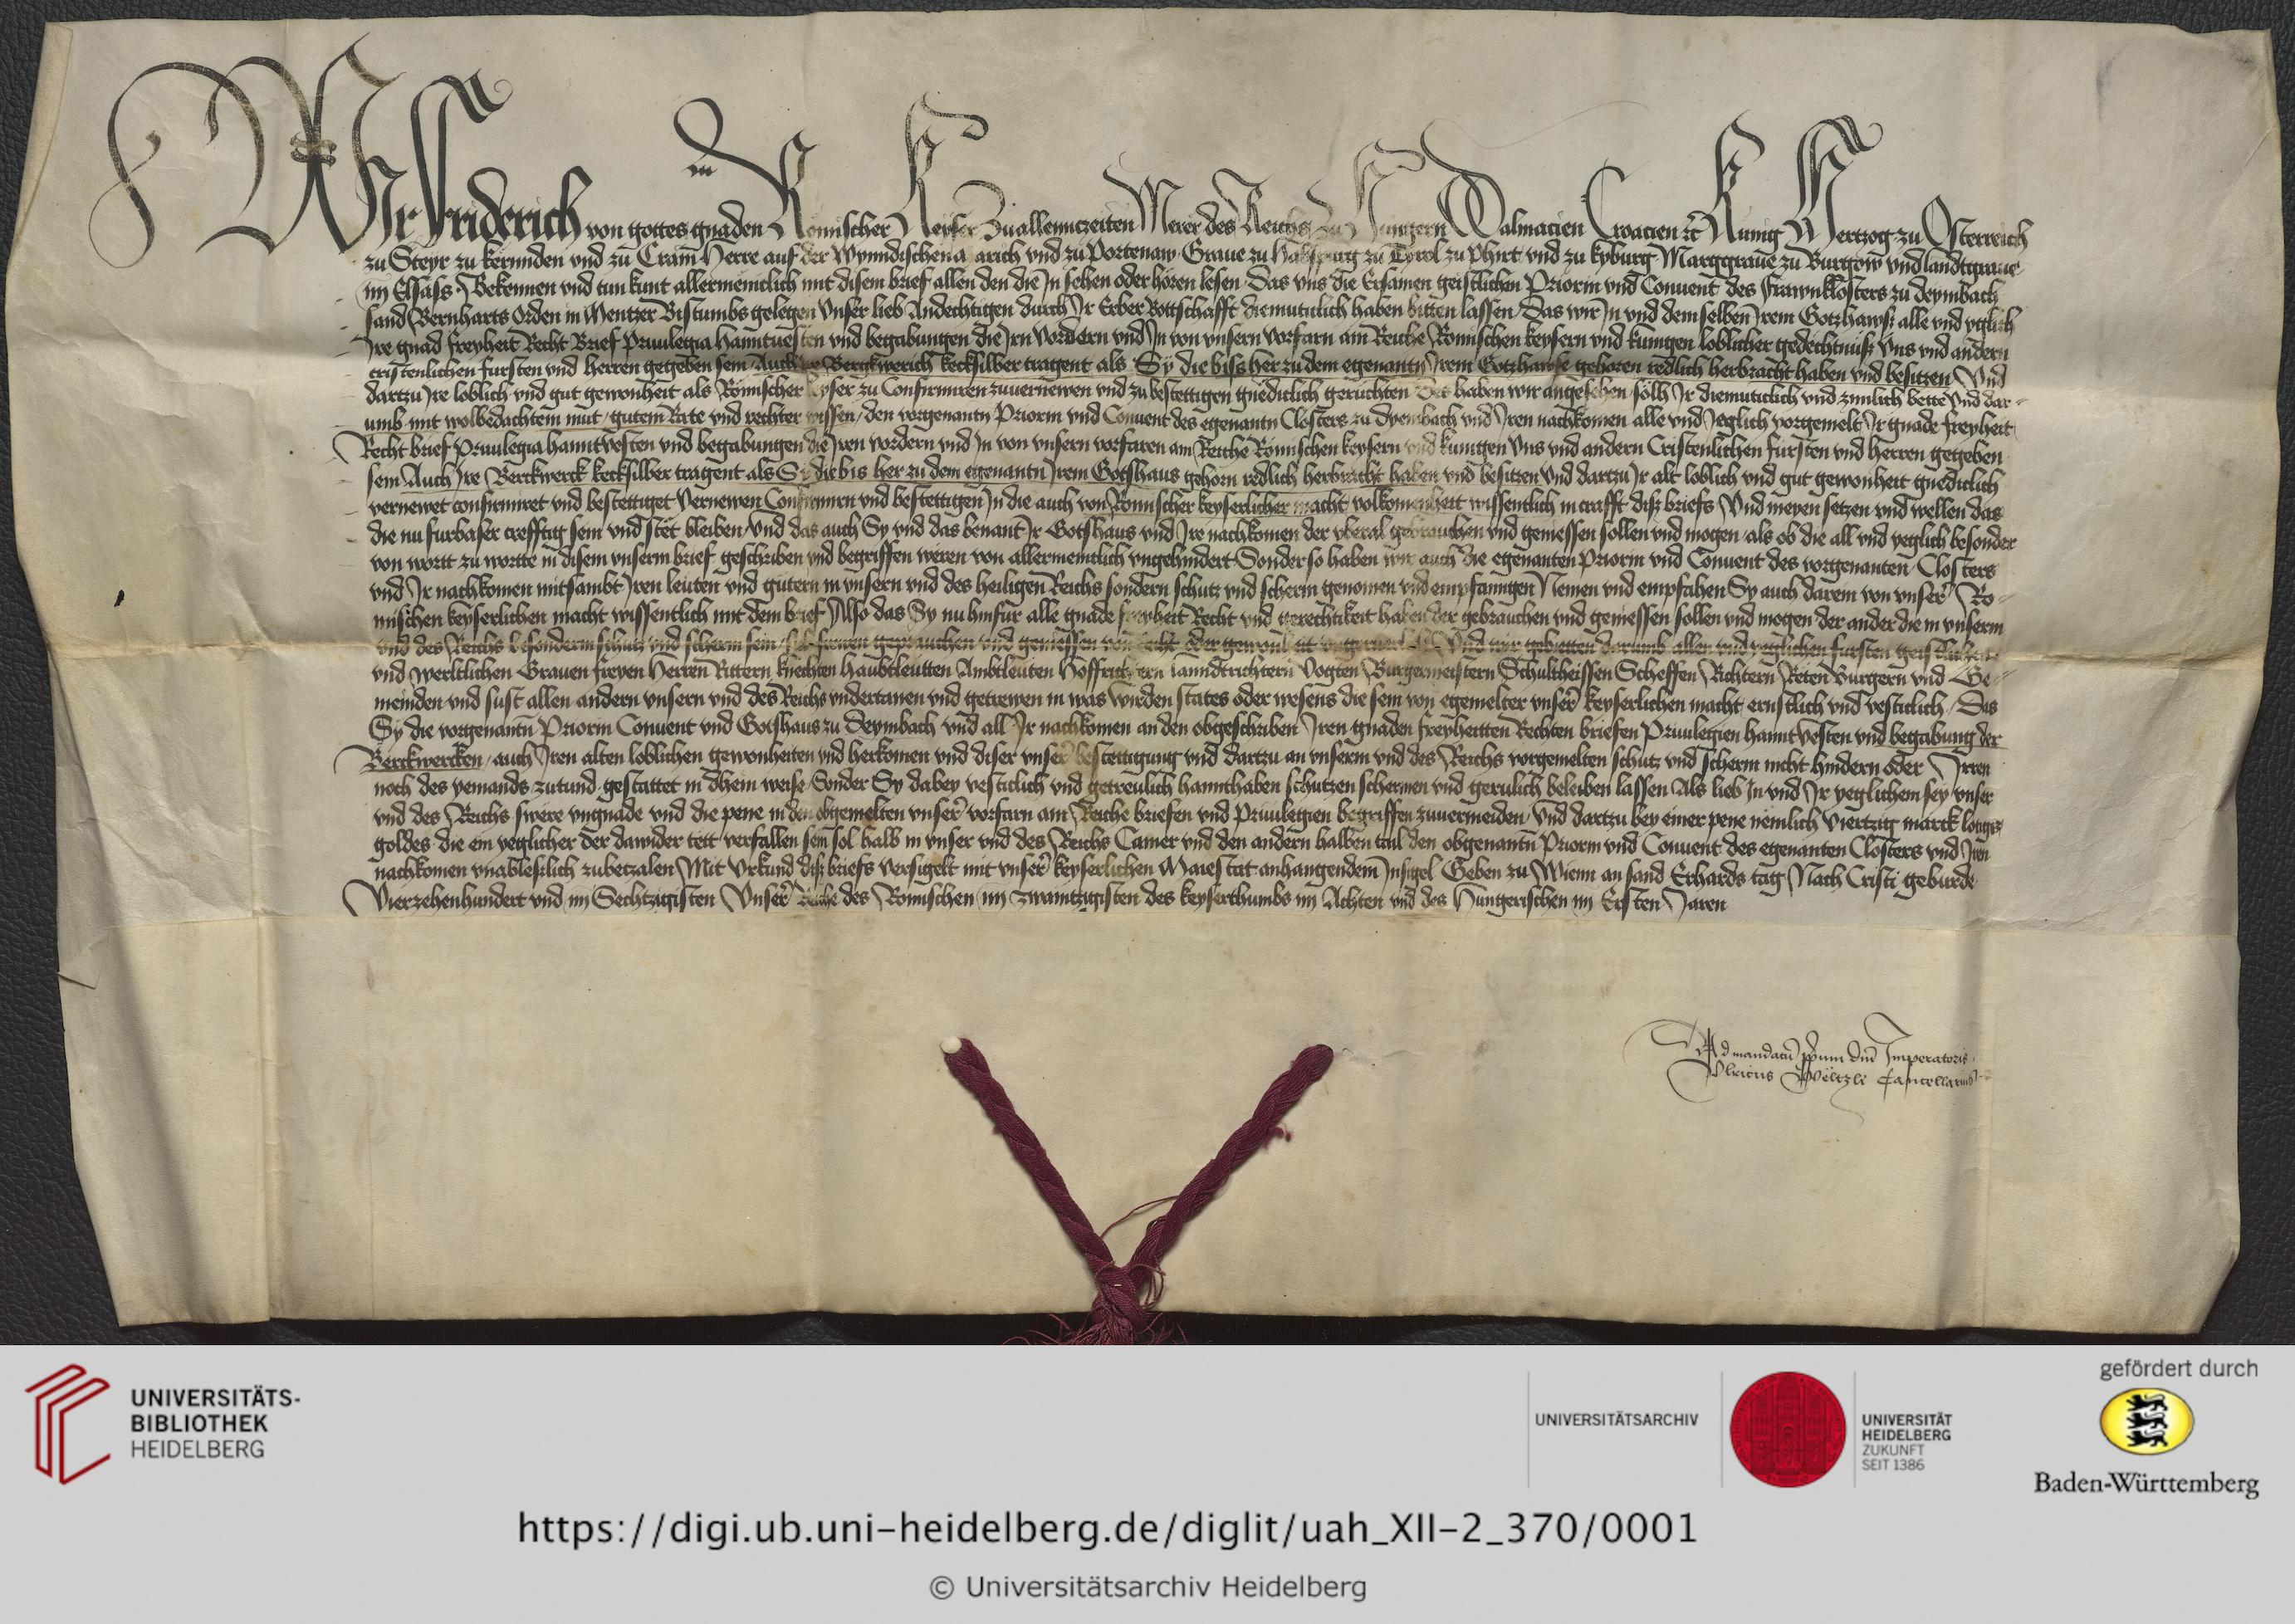 Wir Friderich von gottes gnaden Romischer Keyser Zuallenntzeiten Merer des Reichs zu Hungern Dalmatien Croatien ꝛc Kunig Hertzog zu Osterreich
zu Steyr zu kernnden vnd zu Crain Herre auf der Wynndischen march vnd zu Portenaw Graue zu Habspurg zu Tyrol zu Phirt vnd zu kyburg Marggraue zu Burgow vnd lanndtgraue
im Elsass Bekennen vnd tun kunt allermeniclich mit disem brief allen den die In sehen oder horen lesen Das vns die Ersamen geistlichen Priorin vnd Conuent des Frawnklosters zu deymbach
sand Bernharts Orden in Mentzer Bistumbs gelegen vnser lieb Andechtigen durch Ir Erber Bottschafft diemuticlich haben bitten lassen Das wir In vnd demselben Irem Gotzhawss alle vnd yglich
Ire gnad freyheit Recht Brief Priuilegia Hanntuesten vnd begabungen die Irn vordern vnd In von vnsern vorfarn am Reiche Romischen keysern vnd kunigen loblicher gedechtnuss vns vnd andern
cristenlichen fursten vnd herren gegeben sein Auch Ire Bergkwerich kecksilber tragent als Sy die bissher zu dem egenantn Irem Gotzhawse gehoren redlich herbracht haben vnd besitzen Vnd
dartzu Ire loblich vnd gut gewonheit als Romischer keyser zu Confirmiren zuuernewen vnd zu bestettigen gnediclich geruchten Des haben wir angesehen sölh Ir diemuticlich vnd zimlich bette Vnd dar-
umb mit wolbedachtem mut gutem Rate vnd rechter wissen den vorgenantn Priorin vnd Conuent des egenantn Closters zu Dyembach vnd Iren nachkomen alle vnd Yeglich vorgemelt Ir gnade freyheit
Recht brief Priuilegia hanntvesten vnd begabungen die Iren vordern vnd In von vnsern vorfaren am Reiche Romischen keysern vnd kunigen Vns vnd andern Cristenlichen fursten vnd herren gegeben
sein Auch Ire Berckwerck kecksilber tragent als Sy die bis her zu dem egenantn Irem Gotshaus gehorn redlich herbracht haben vnd besitzen Vnd dartzu Ir alt loblich vnd gut gewonheit gnediclich
vernewet confirmiret vnd bestettiget Vernewen Confirmirn vnd bestettigen In die auch von Romischer keyserlicher macht volkomenheit wissentlich in crafft diss briefs Vnd meynen setzen vnd wellen das
die nu furbaser crefftig sein vnd stet bleiben Vnd das auch Sy vnd das benant Ir Gotshaus vnd Ire nachkomen der vberal gebrauchen vnd geniessen sollen vnd mogen als ob die all vnd yeglich besonder
von wortt zu wortte in disem vnserm brief geschriben vnd begriffen weren von allermeniclich vngehindert Sonder so haben wir auch die egenanten Priorin vnd Conuent des vorgenanten Closters
vnd Ir nachkomen mitsambt Iren leuten vnd gutern in vnsern vnd des heiligen Reichs sondern schutz vnd scherm genomen vnd empfanngen Nemen vnd empfahen Sy auch darein von vnser Ro-
mischen keyserlichen macht wissentlich mit dem brief Also das Sy nu hinfur alle gnade freyheit Recht vnd gerechtikeit haben der gebrauchen vnd geniessen sollen vnd mogen der ander die in vnserm
vnd des Reichs besonderm schutz vnd scherm sein gebrauchen vnd geniessen von recht oder gewonheit Vnd wir gebietten darumb allen vnd yeglichen fursten geistlichen
vnd werltlichen Grauen freyen Herren Rittern knechten Haubtleutten Ambtleuten Hoffrichtern lanndtrichtern Vogten Burgermeistern Schultheissen Scheffen Richtern Reten Burgern vnd Ge-
meinden vnd sust allen andern vnsern vnd des Reichs vndertanen vnd getrewen in was wirden states oder wesens die sein von egemelter vnser keyserlichen macht ernstlich vnd vesticlich Das
Sy die vorgenantn Priorin Conuent vnd Gotshaus zu Deymbach vnd all Ir nachkomen an den obgeschriben Iren gnaden freyheitten Rechten briefen Priuilegien hanntvesten vnd begabung der
Berckwercken auch Iren alten loblichen gewonheiten vnd herkomen vnd diser vnser bestettigung vnd dartzu an vnserm vnd des Reichs vorgemelten schutz vnd scherm nicht hindern oder Irren
noch des yemands zutund gestattet in dhein weise Sonder Sy dabey vesticlich vnd getreulich hannthaben schutzen schermen vnd gerulich beleiben lassen Als lieb In vnd Ir yeglichem sey vnser
vnd des Reichs swere vngnade vnd die pene in den obgemelten vnser vorfarn am Reiche briefen vnd Priuilegien begriffen zuuermeiden Vnd dartzu bey einer pene nemlich Viertzig marck lotigs
goldes die ein yeglicher der dawider tett verfallen sein sol halb in vnser vnd des Reichs Camer vnd den andern halben tail den obgenantn Priorin vnd Conuent des egenanten Closters vnd Iren
nachkomen vnableslich zubetzalen Mit Vrkund diss briefs versigelt mit vnser keyserlichen Maiestat anhangendem Insigel Geben zu Wienn an sand Erhards tag Nach Cristi geburde
Vierzehenhundert vnd im Sechtzigisten Vnser Reiche des Romischen im zwaintzigisten des keyserthumbs im Achten vnd des Hungerischen im Ersten Jaren
Ad mandatu ppium dni Imperatoris
Vlricus Weltzli Cancellarius
UNIVERSITÄTS-
BIBLIOTHEK
HEIDELBERG
UNIVERSITÄTSARCHIV
UNIVERSITÄT
HEIDELBERG
ZUKUNFT
SEIT 1386
gefördert durch
Baden-Württemberg
https://digi.ub.uni-heidelberg.de/diglit/uah_XII-2_370/0001
© Universitätsarchiv Heidelberg